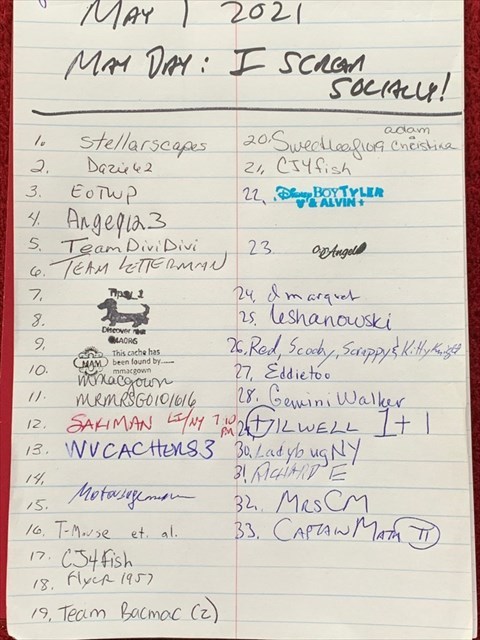 MAY 1 2021
MAY DAY: I SCREAM
SOCIALLY!
1. Stellarscapes
2. Dazie42
3. EOTWP
4. Angeq123
5. TeamDiviDivi
6. TEAM LETTERMAN
7.
8. Discover me
9. This cache has
been found by
mmacgown
10. mmacgown
11. MRMRSGO101616
12. SAKIMAN LI/NY 7:10 PM
13. WVCACHERS3
14.
15.
16. T-Mouse et. al.
17. CJ4fish
18. Flyer1957
19. Team Bacmac (2)
adam
20. Sweetleaf1019 Christina
21. CJ4fish
22. Disney BOYTYLER
& ALVIN +
23 Angel
24. dmarquet
25. leshanowski
26. Red, Scooby, Scrappy & Kitty Knight
27. Eddietoo
28. GeminiWalker
29. TILWELL 1+1
30. LadybugNY
31. RICHARD E
32. MRSCM
33. CAPTAIN MATH π